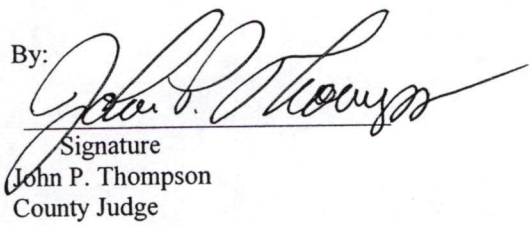 By:
John P. Thompson
Signature
John P. Thompson
County Judge